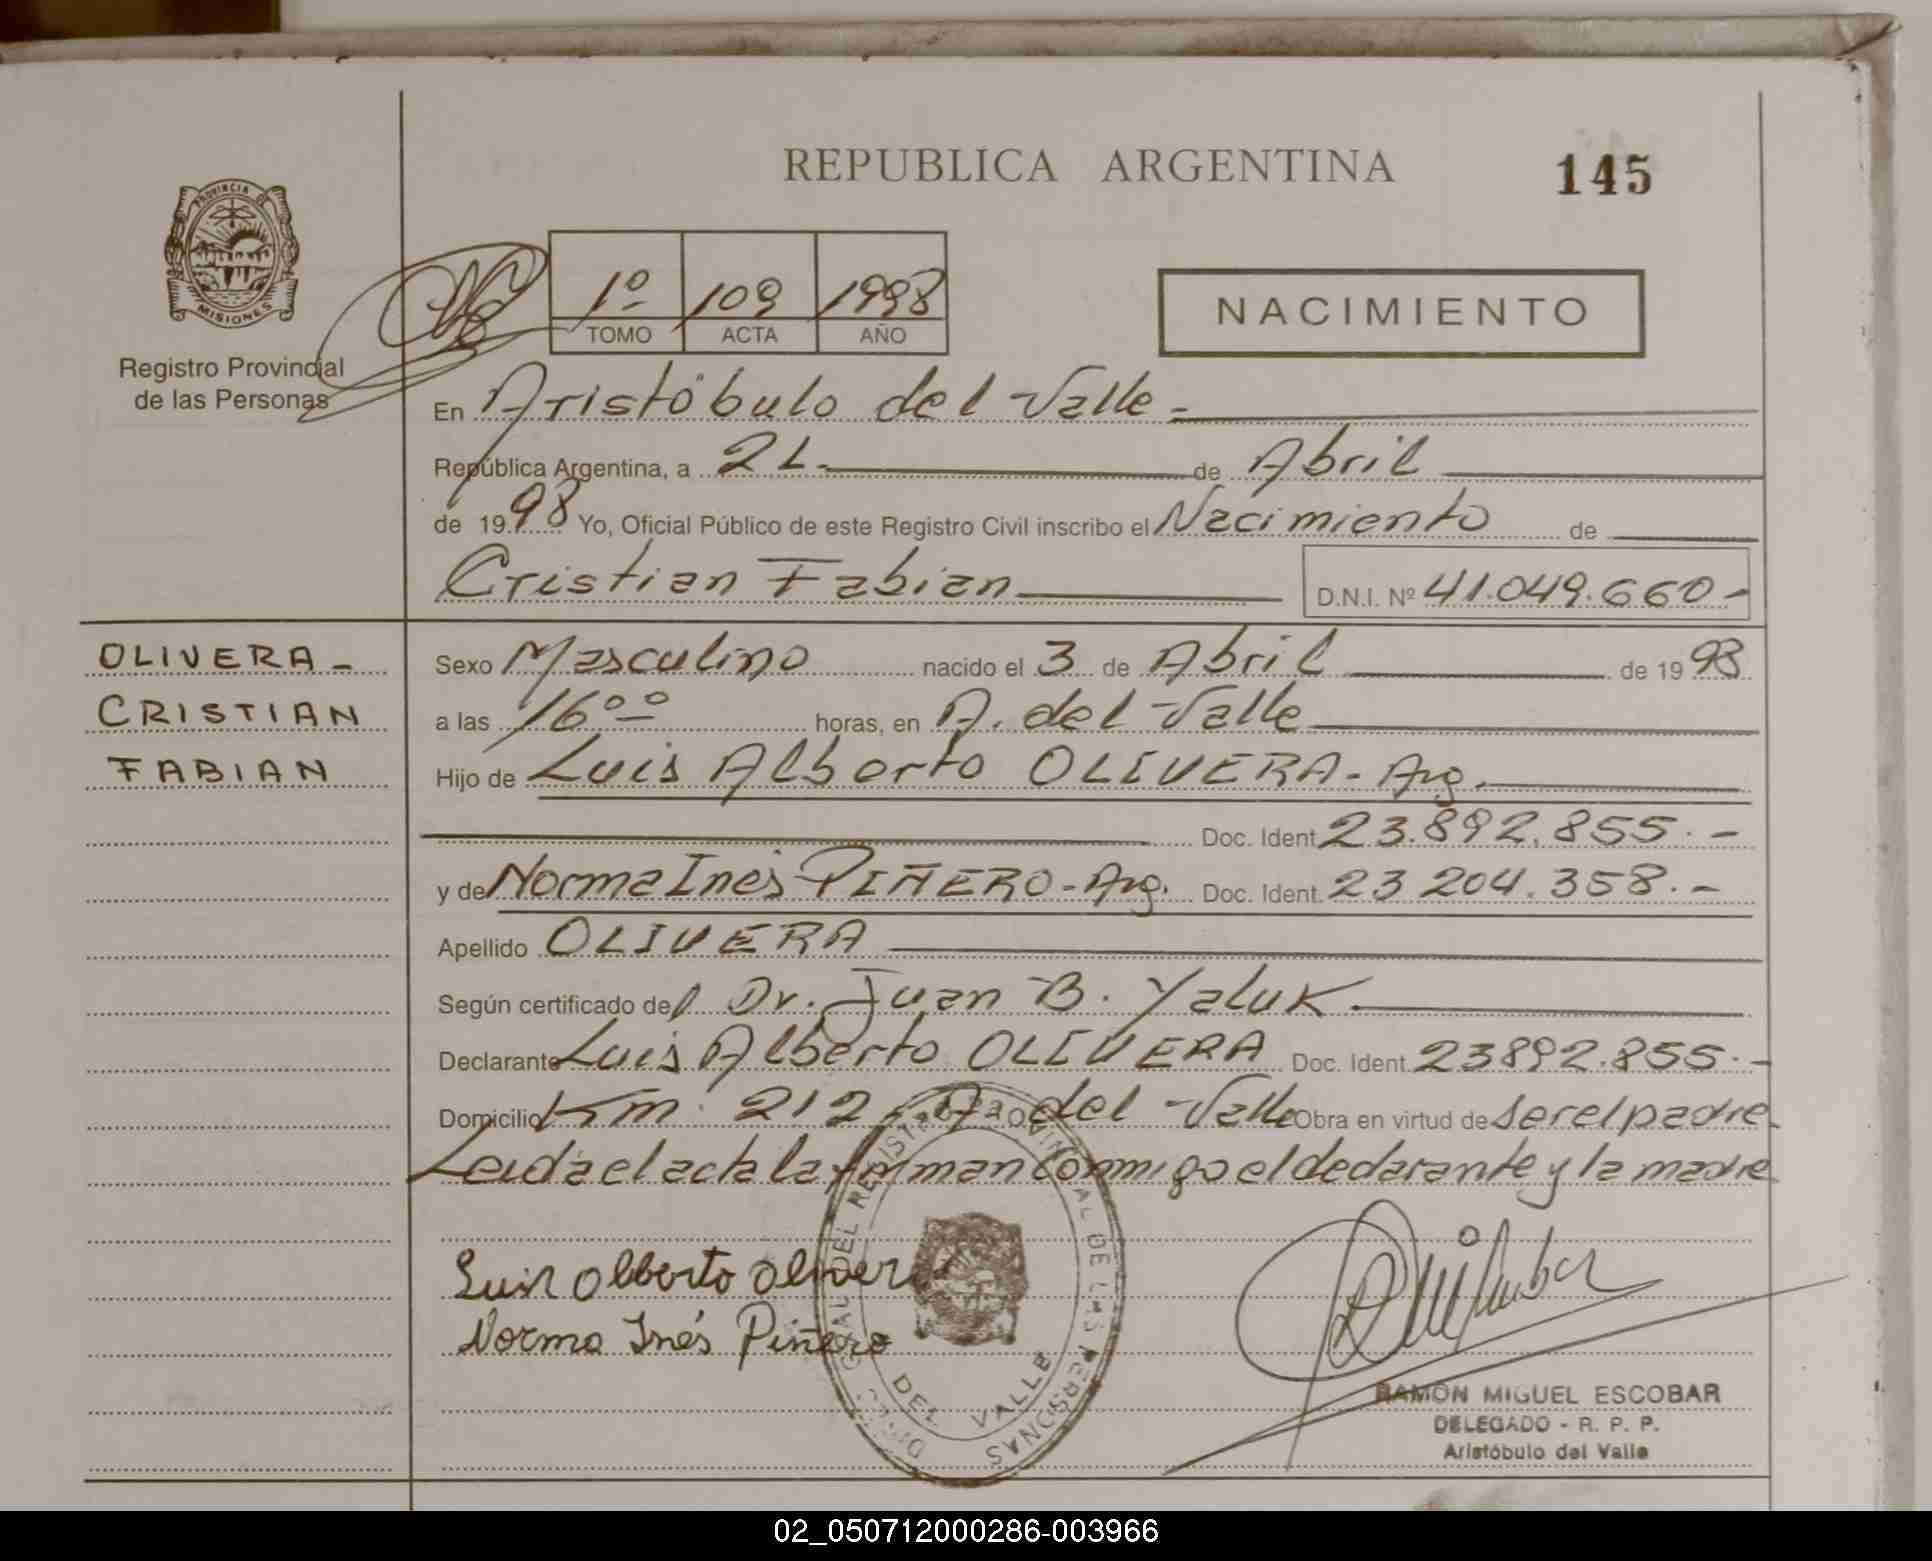 REPUBLICA ARGENTINA
145
PROVINCIA DE
MISIONES
Registro Provincial
de las Personas
1º 109 1998
TOMO ACTA AÑO
NACIMIENTO
En Aristóbulo del Valle -
República Argentina, a 21 de Abril
de 1998 Yo, Oficial Público de este Registro Civil inscribo el Nacimiento de
Cristian Fabian D.N.I. Nº 41.049.660-
OLIVERA -
CRISTIAN
FABIAN
Sexo Masculino nacido el 3 de Abril de 1998
a las 16ºº horas, en A. del Valle
Hijo de Luis Alberto OLIVERA - Arg.
Doc. Ident. 23.892.855.-
y de Norma Inés PIÑERO - Arg. Doc. Ident. 23 204.358.-
Apellido OLIVERA
Según certificado del Dr. Juan B. Yaluk.
Declarante Luis Alberto OLIVERA Doc. Ident. 23892.855.-
Domicilio Km. 212 A. del Valle Obra en virtud de ser el padre.
Leida el acta la firman conmigo el declarante y la madre
Luis Alberto Olivera
Norma Inés Piñero
DEL REGISTRO PROVINCIAL DE LAS PERSONAS
DEL VALLE
RAMON MIGUEL ESCOBAR
DELEGADO - R. P. P.
Aristóbulo del Valle
02_050712000286-003966